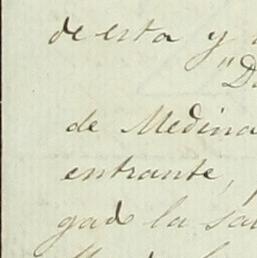 de esta y
"D
de Medina
entrante,
gado la sa